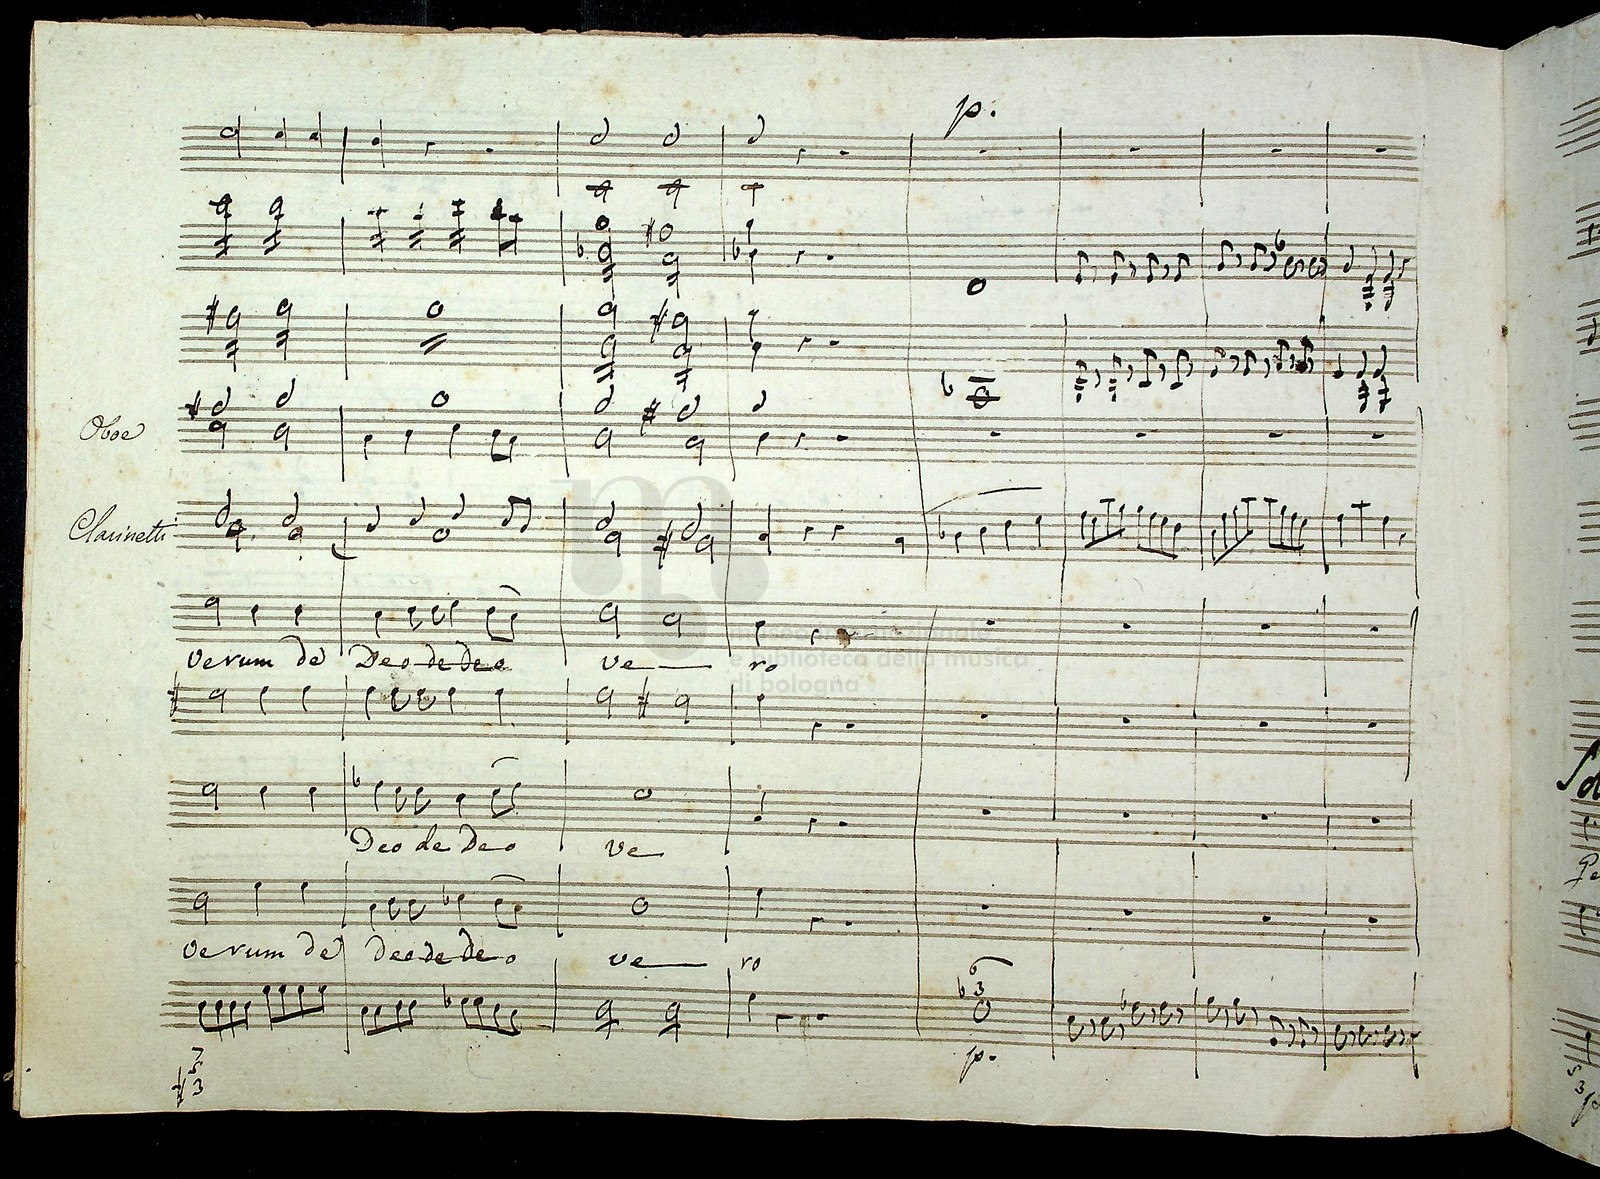 p.
Oboe
Clarinetti
verum de Deo de deo ve ro
museo internazionale
e biblioteca della musica
di bologna
Deo de Deo ve
verum de Deo de de o ve ro
6
♭3
p.
7
5
♯3